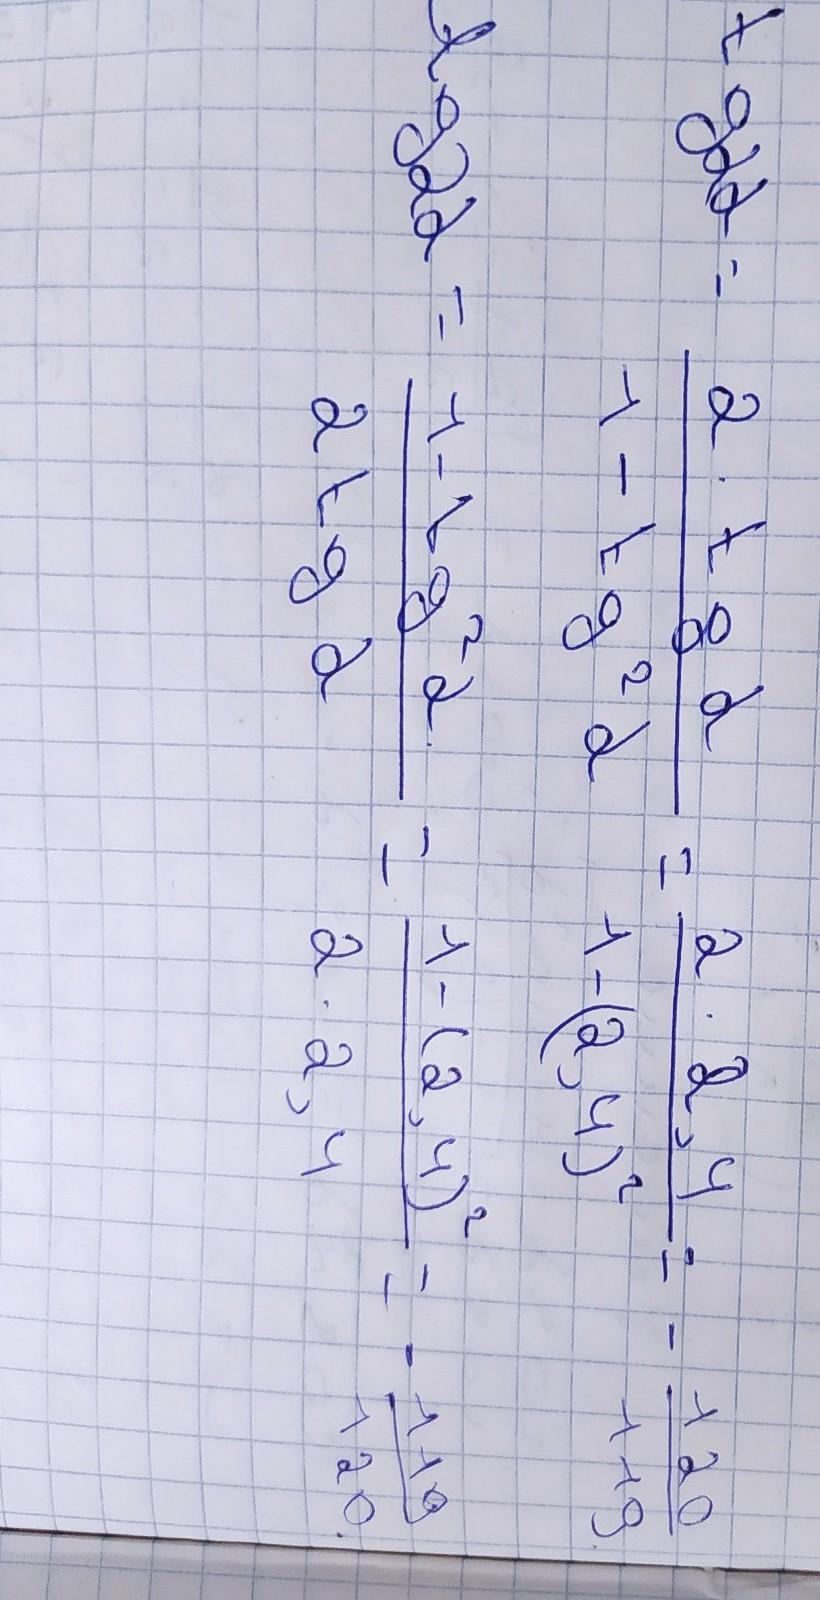 tg2α = 2·tgα / 1-tg²α = 2·2,4 / 1-(2,4)² = - 120/119
tg2α = 1-tg²α / 2tgα = 1-(2,4)² / 2·2,4 = - 119/120.